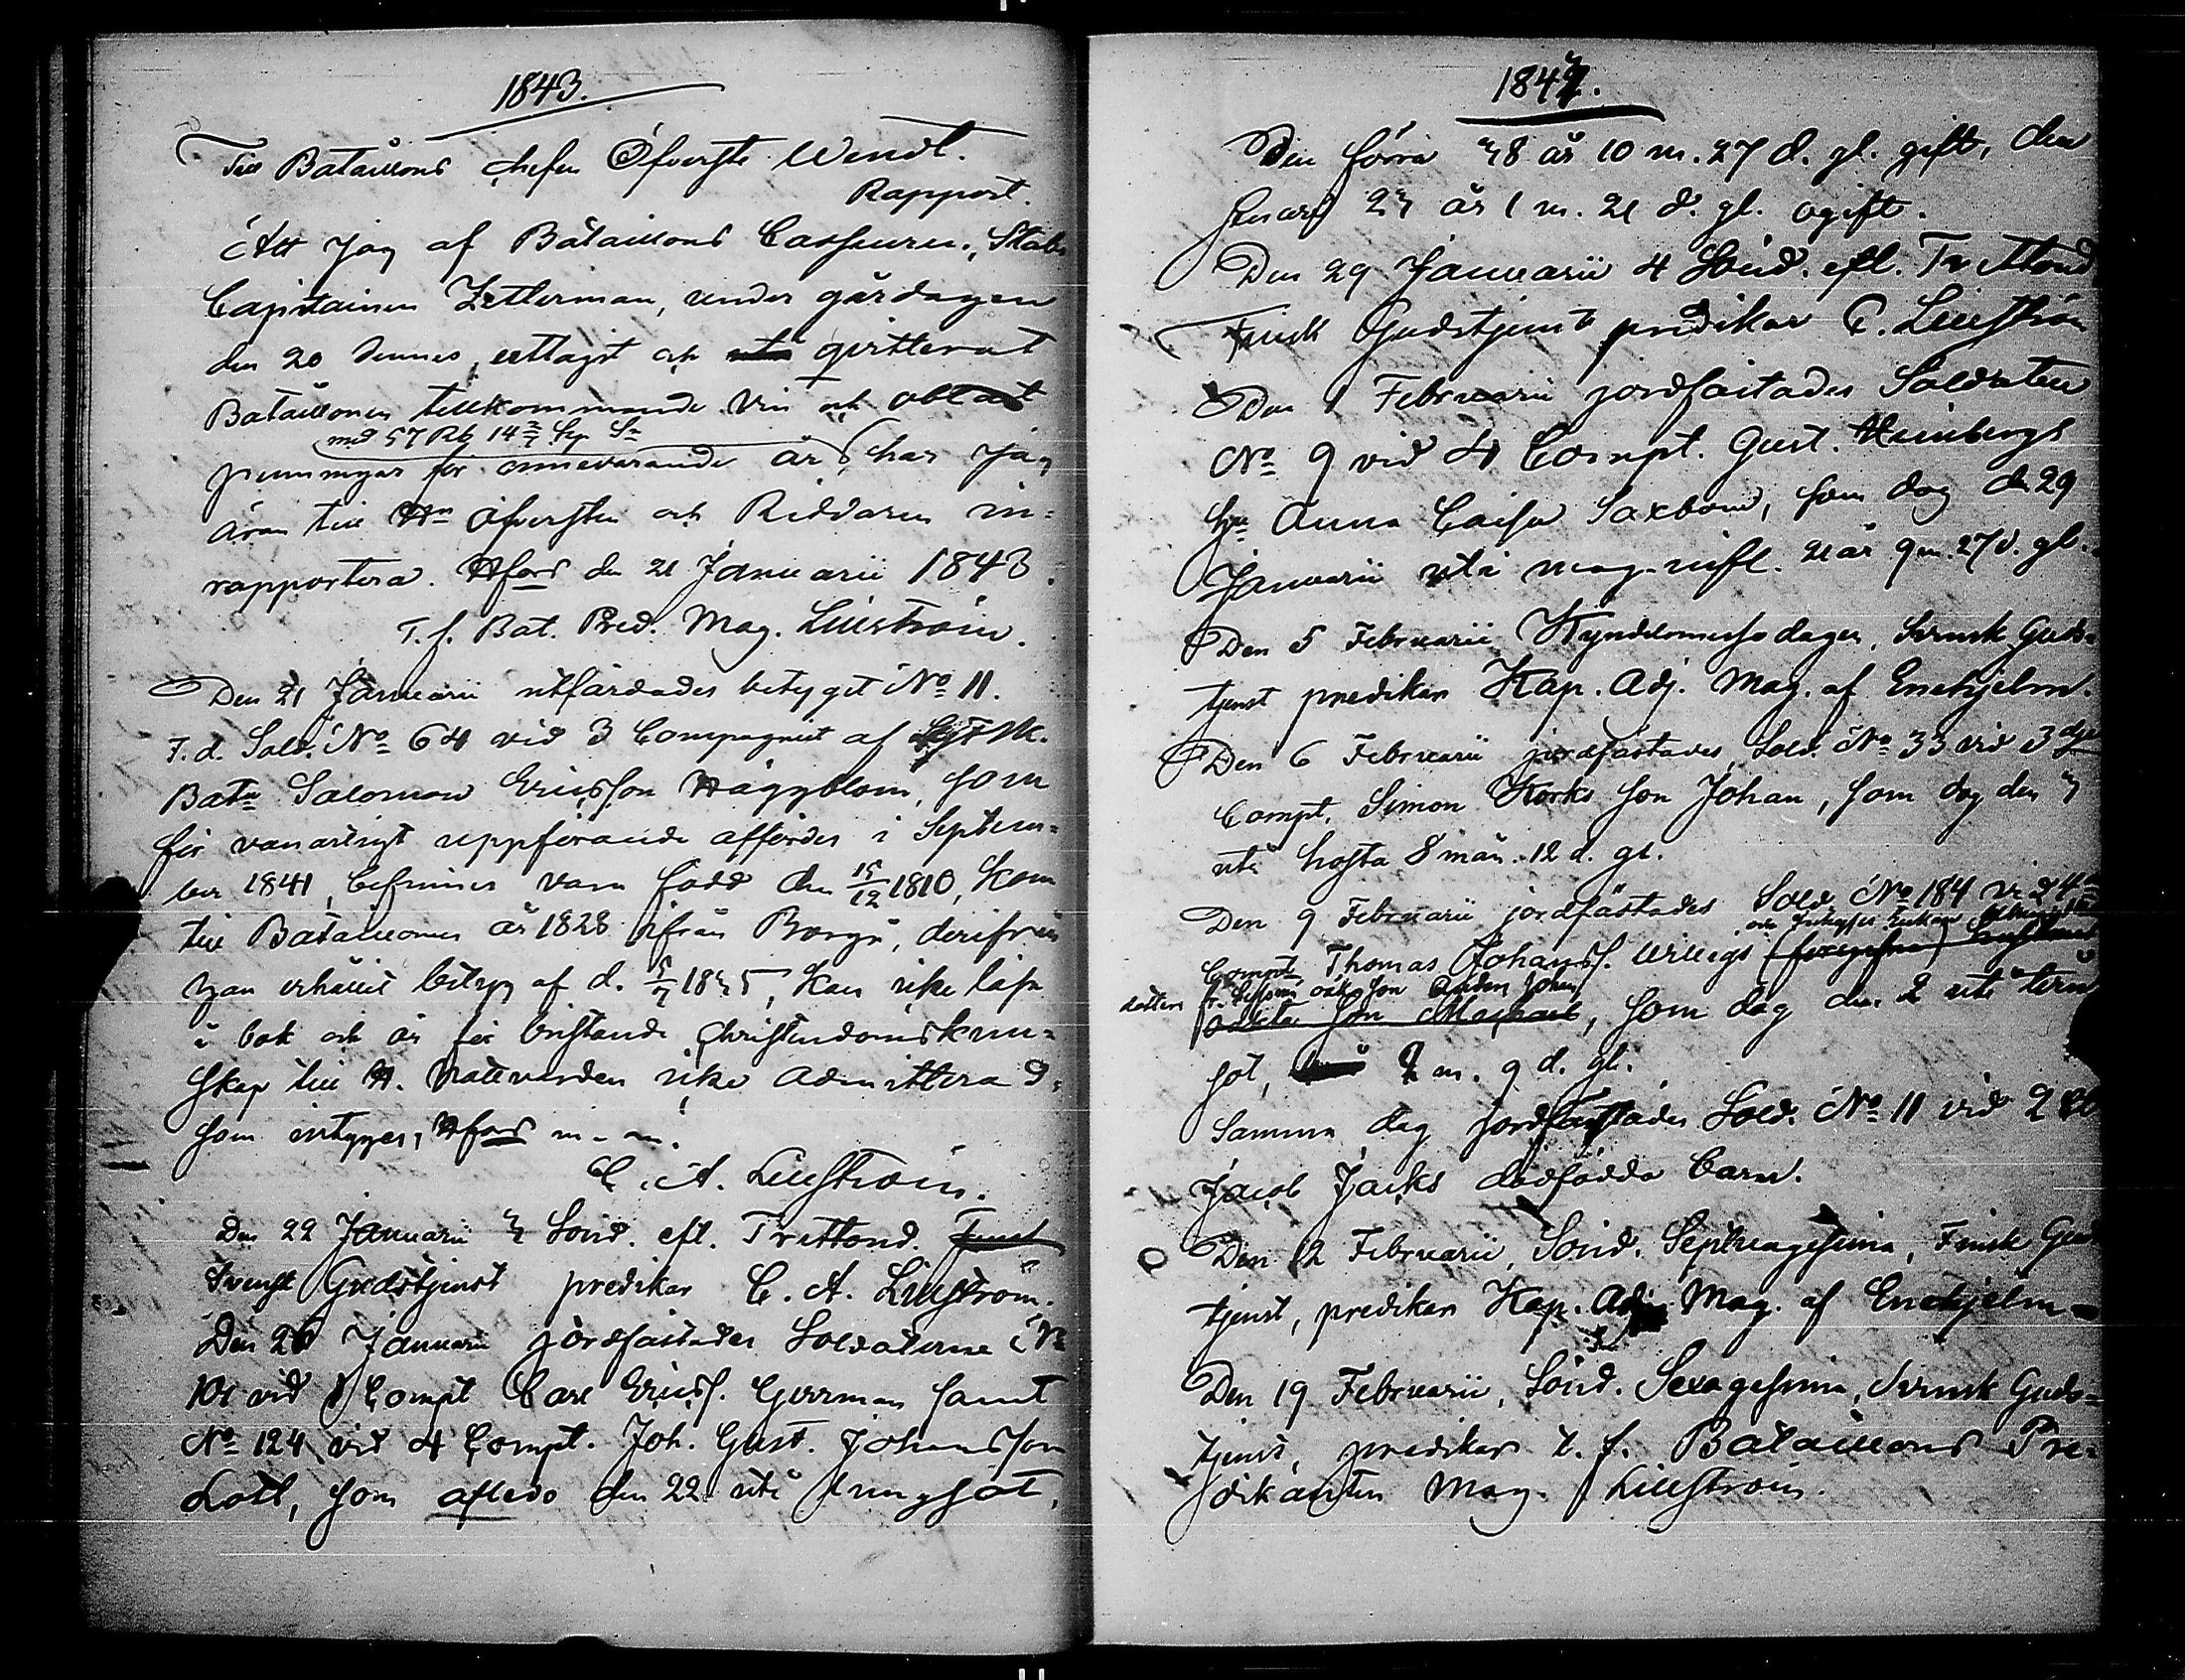 1843.
Till Bataillons chefen Öfverste Wendt.
Rapport.
Att jag af Bataillons Casseuren, Stabs
Capitainen Zetterman, under gårdagen
den 20 dennes, uttagit och qvitterat
Bataillonen tillkommande vin och oblat
med 57 Rb 14 2/7 Sep Sr
penningar för innevarande år, har jag
äran till Hn Öfversten och Riddaren in=
rapportera. Hfors den 21 Januarii 1843.
T. f. Bat. Pred. Mag. Liliströin.
Den 21 Januarii utfärdades betyget No 11.
F. d. Sold. No 64 vid 3 Compagniet af Skarpsk.
Batn Salomon Ericsson Häggblom, som
för vanartigt uppförande affördes i Septem=
ber 1841, befinnes vara född den 15/12 1810, kom
till Bataillonen år 1828 ifrån Borgå, derifrån
han erhållit betyg af d. 5/7 1835, kan icke läsa
i bok och är för bristande Christendomskun=
skap till H. Nattvarden icke admitterad,
som intygas, Hfors m. m.
C. A. Liliströin.
Den 22 Januarii 3 Sönd. eft. Trettond. Finsk
Svensk Gudstjenst predikar C. A. Liliströin.
Den 26 Januarii jordfästades Soldaterne No
101 vid 1 Compt Carl Ericss. Gerrman samt
No 124 vid 4 Compt. Joh. Gust. Johansson
Lott, som afledo den 22 uti lungsot,
1843.
Den förra 38 år 10 m. 27 d. gl. gift, den
senare 23 år 1 m. 21 d. gl. ogift.
Den 29 Januarii 4 Sönd. eft. Trettond
Finsk Gudstjenst predikar C. Liliströin
Den 1 Februarii jordfästades Soldaten
No 9 vid 4 Compt. Gust. Heinbergs
hu Anna Caisa Saxbom, som dog den 29
Januarii uti mag. infl. 21 år 9 m. 27 d. gl.
Den 5 Februarii Kyndelsmessodagen, Svensk Guds=
tjenst predikar Kap. Adj. Mag. af Enehjelm.
Den 6 Februarii jordfästades Sold. No 33 vid 3dje
Compt. Simon Korks son Johan, som dog den 3
uti hosta 8 mån. 12 d. gl.
Den 9 Februarii jordfästades Sold. No 184 vid 4
Compts Thomas Johanss. Willigs
som dog den 2 uti torn
sot, 2 m. 9 d. gl.
Samma dag jordfästades Sold. No 11 vid 2 Co
Jacob Jacks dödfödda barn.
Den 12 Februarii, Sönd. Septuagesima, Finsk Gud
tjenst, predikar Kap. Adj. Mag. af Enehjelm
Den 19 Februarii, Sönd. Sexagesima, Svensk Guds=
tjenst, predikar t. f. Bataillons Pre=
dikanten Mag. Liliströin.